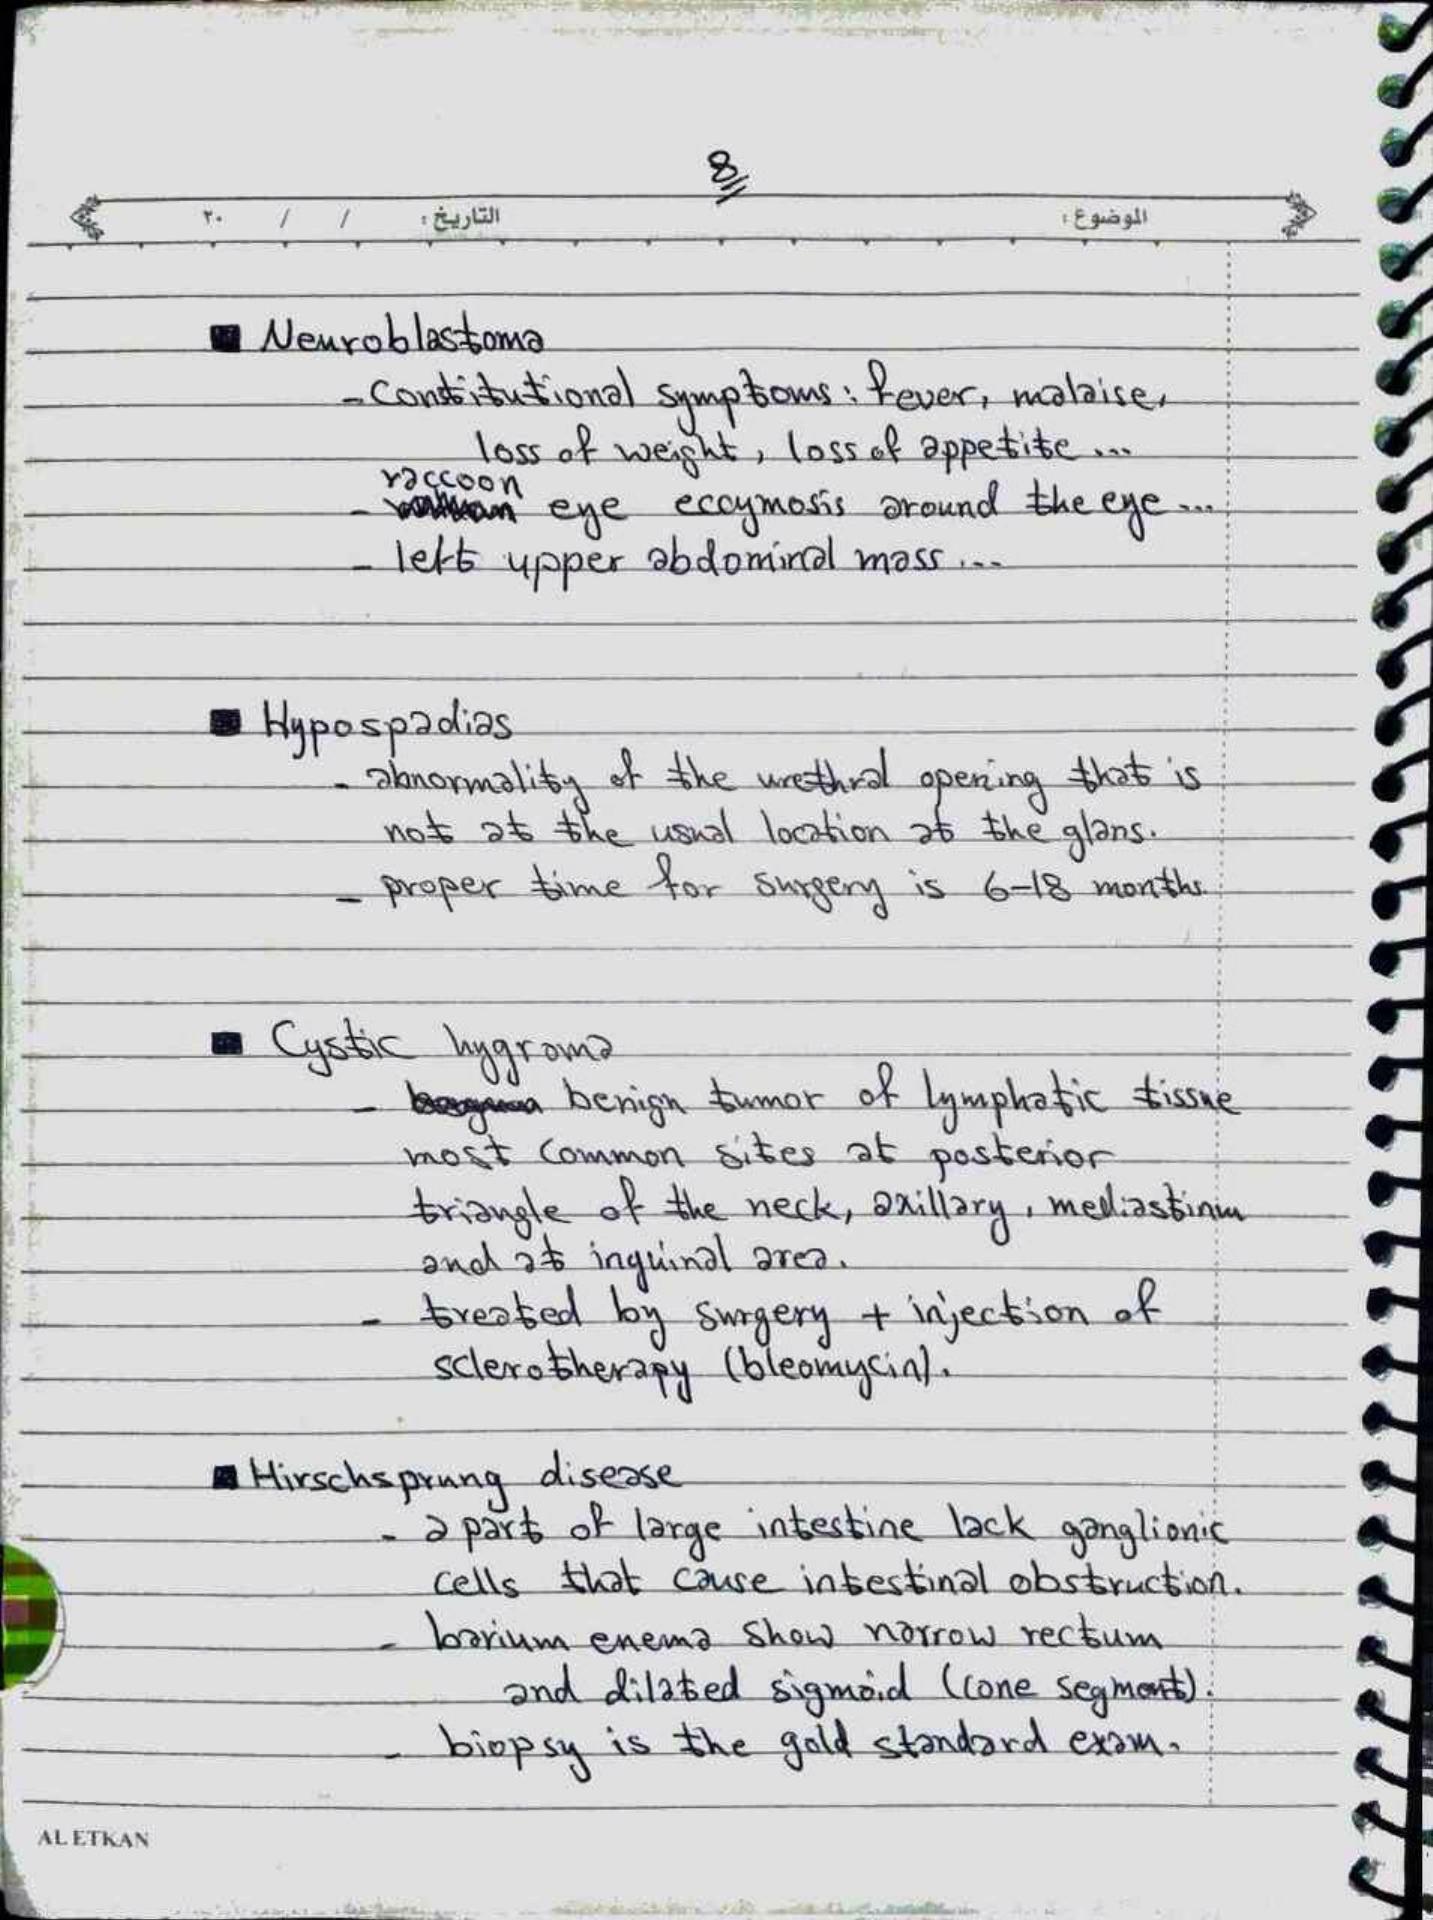 8
الموضوع: التاريخ: / / ٢٠
■ Neuroblastoma
- Constitutional symptoms: fever, malaise,
loss of weight, loss of appetite ...
raccoon
- eye eccymosis around the eye ...
- left upper abdominal mass ...
■ Hypospadias
- abnormality of the urethral opening that is
not at the usual location at the glans.
- proper time for surgery is 6-18 months.
■ Cystic hygroma
- benign tumor of lymphatic tissue
most common sites at posterior
triangle of the neck, axillary, mediastinum
and at inguinal area.
- treated by surgery + injection of
sclerotherapy (bleomycin).
■ Hirschsprung disease
- a part of large intestine lack ganglionic
cells that cause intestinal obstruction.
- barium enema show narrow rectum
and dilated sigmoid (cone segment).
- biopsy is the gold standard exam.
AL ETKAN